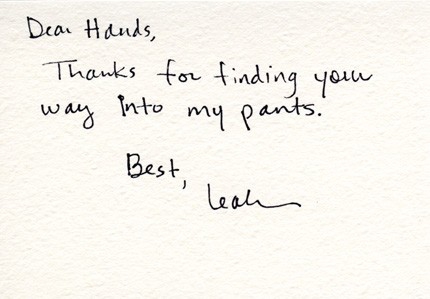 Dear Hands,
Thanks for finding your
way into my pants.
Best,
Leah